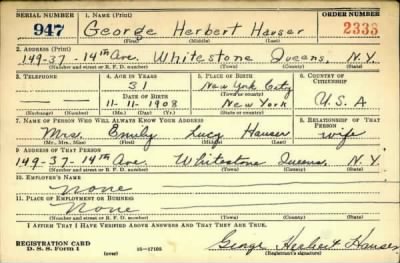 SERIAL NUMBER 1. NAME (Print) ORDER NUMBER
947 George Herbert Hauser 2333
(First) (Middle) (Last)
2. ADDRESS (Print)
149-37-14th Ave. Whitestone Queens, N.Y.
(Number and street or R. F. D. number) (Town) (County) (State)
3. TELEPHONE 4. AGE IN YEARS 5. PLACE OF BIRTH 6. COUNTRY OF CITIZENSHIP
31 New York City
DATE OF BIRTH (Town or county)
11-11-1908 New York U.S.A
(Exchange) (Number) (Mo.) (Day) (Yr.) (State or country)
7. NAME OF PERSON WHO WILL ALWAYS KNOW YOUR ADDRESS 8. RELATIONSHIP OF THAT PERSON
Mrs. Emily Lucy Hauser wife
(Mr., Mrs., Miss) (First) (Middle) (Last)
9. ADDRESS OF THAT PERSON
149-37-14th Ave. Whitestone Queens N.Y.
(Number and street or R. F. D. number) (Town) (County) (State)
10. EMPLOYER'S NAME
None
11. PLACE OF EMPLOYMENT OR BUSINESS
None
(Number and street or R. F. D. number) (Town) (County) (State)
I AFFIRM THAT I HAVE VERIFIED ABOVE ANSWERS AND THAT THEY ARE TRUE.
REGISTRATION CARD George Herbert Hauser
D. S. S. Form 1 (over) (Registrant's signature)